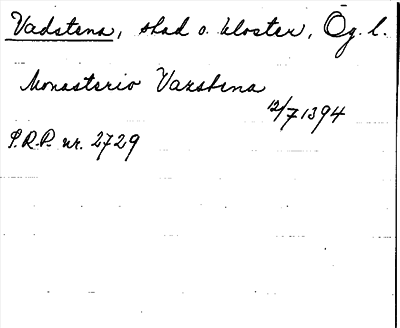 Vadstena, stad o. kloster, Ög. l.
Monasterio Vazstena
12/7 1394
P.R.P. nr. 2729